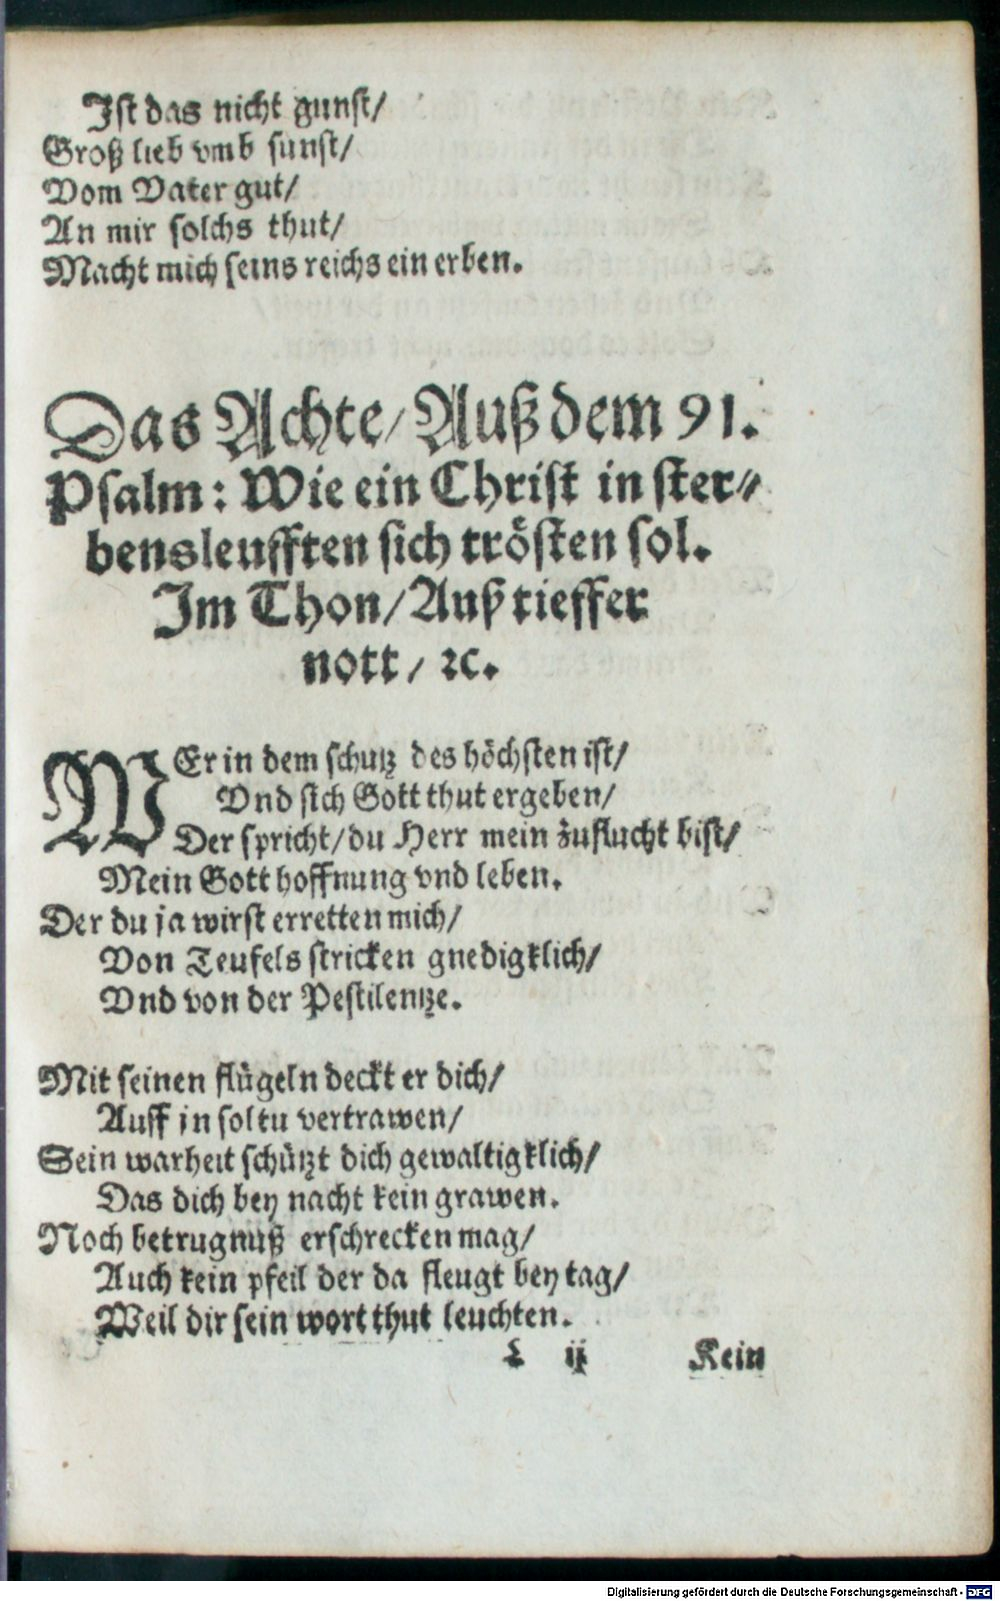 Ist das nicht gunst/
Groß lieb vmb sunst/
Vom Vater gut/
An mir solchs thut/
Macht mich seins reichs ein erben.
Das Achte/ Auß dem 91.
Psalm: Wie ein Christ in ster⸗
bensleufften sich trösten sol.
Im Thon/ Auß tieffer
nott/ ꝛc.
WEr in dem schutz des höchsten ist/
Vnd sich Gott thut ergeben/
Der spricht/ du Herr mein zuflucht bist/
Mein Gott hoffnung vnd leben.
Der du ja wirst erretten mich/
Von Teufels stricken gnedigklich/
Vnd von der Pestilentze.
Mit seinen flügeln deckt er dich/
Auff jn soltu vertrawen/
Sein warheit schützt dich gewaltigklich/
Das dich bey nacht kein grawen.
Noch betrugnuß erschrecken mag/
Auch kein pfeil der da fleugt bey tag/
Weil dir sein wort thut leuchten.
L ij Kein
Digitalisierung gefördert durch die Deutsche Forschungsgemeinschaft - DFG